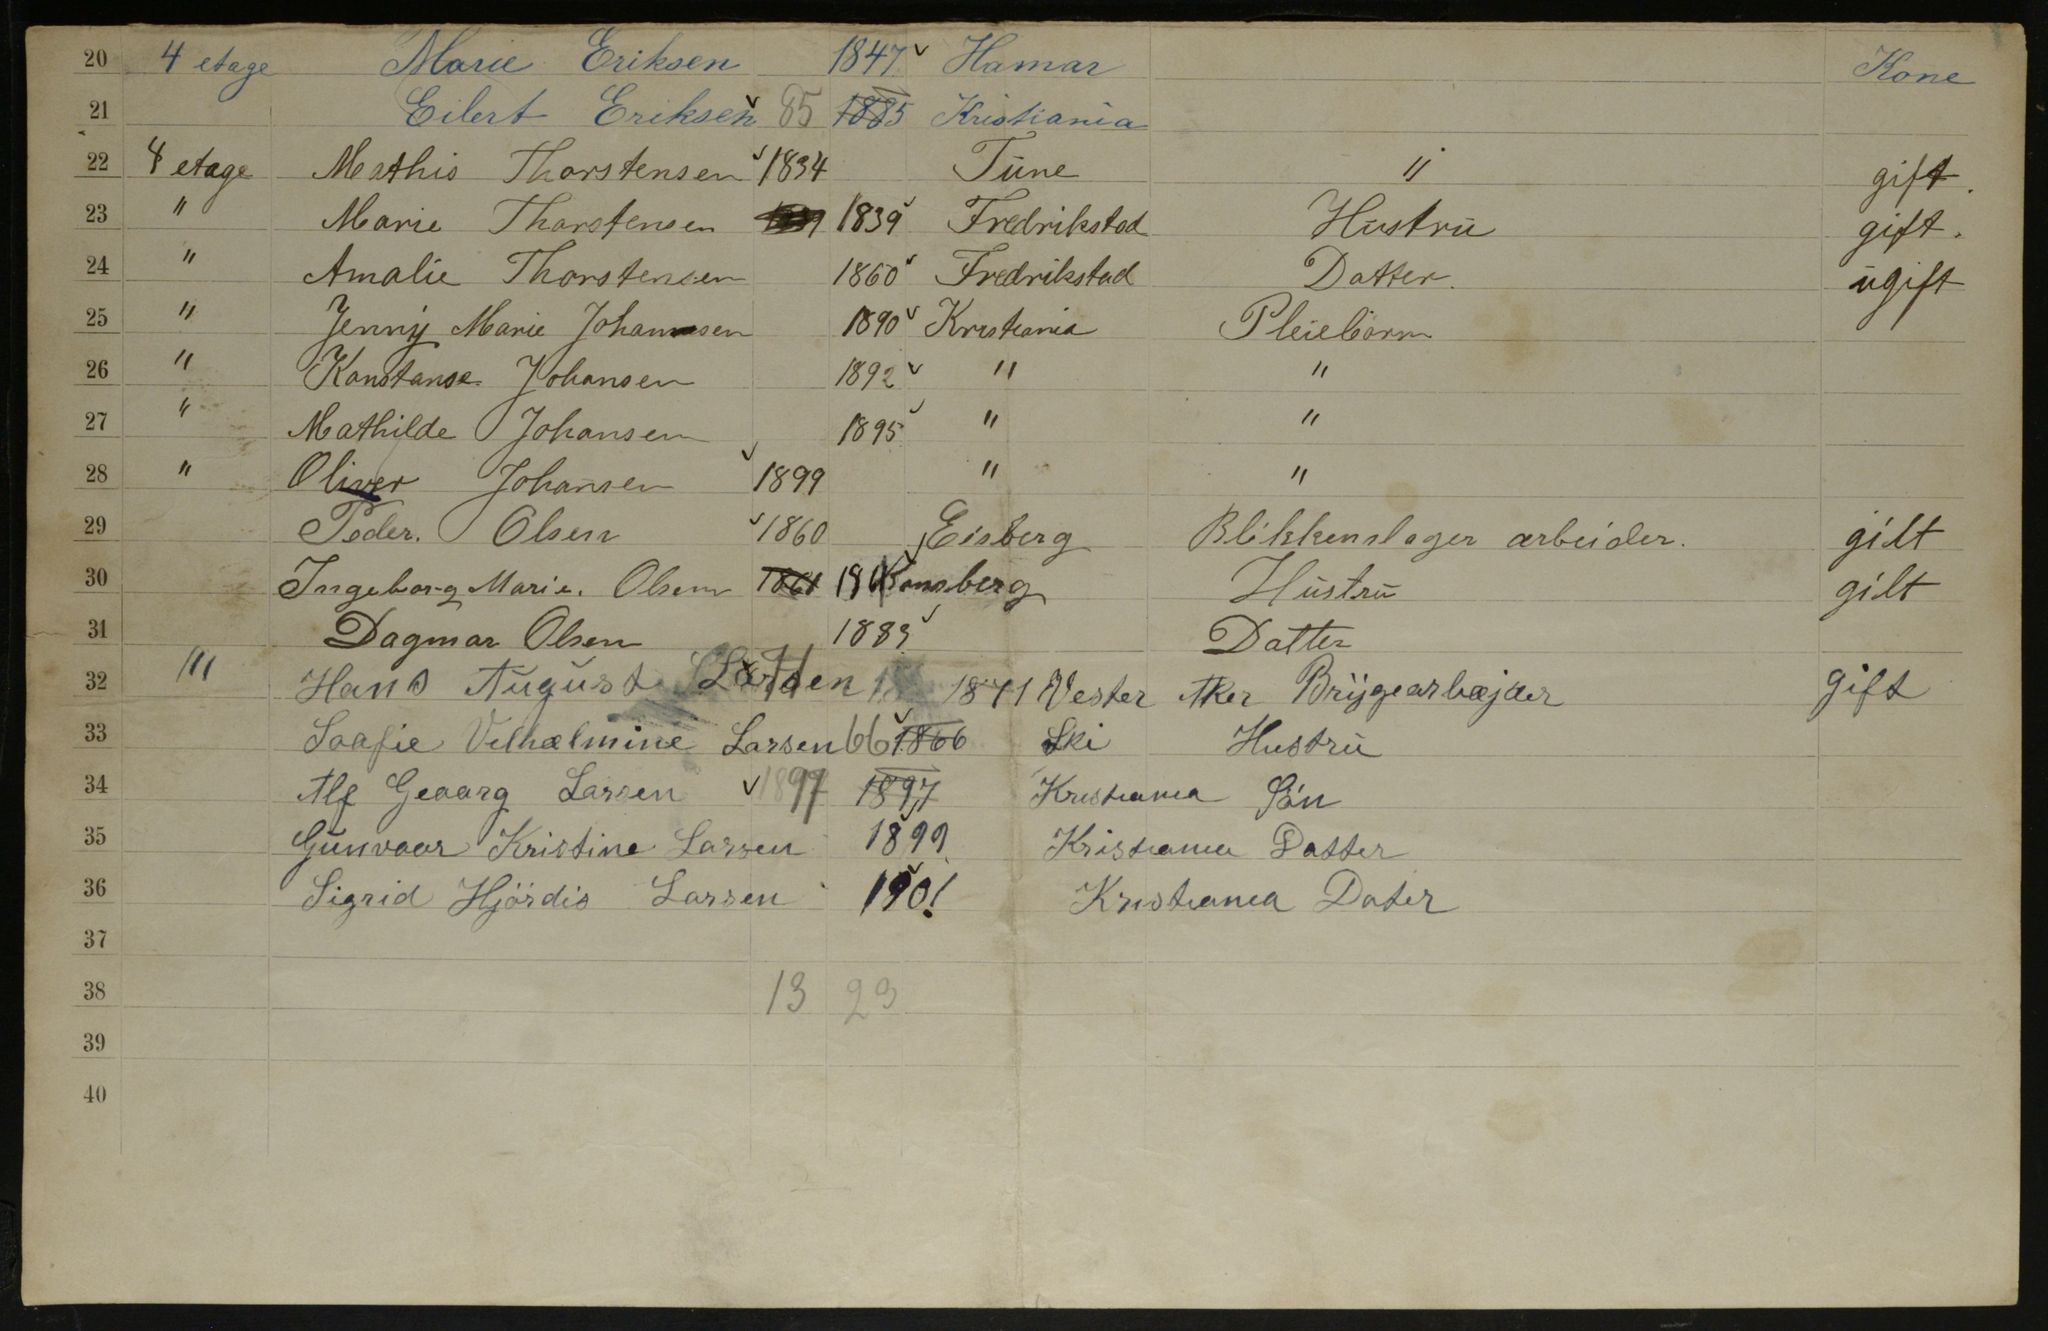 20 4 etage Marie Eriksen 1847 Hamar Kone
21 Eilert Eriksen 85 1885 Kristiania
22 4 etage Mathis Thorstensen 1834 Tune " gift.
23 " Marie Thorstensen 1839 Fredrikstad Hustru gift.
24 " Amalie Thorstensen 1860 Fredrikstad Datter. ugift
25 " Jenny Marie Johannesen 1890 Kristiania Pleiebarn
26 " Konstanse Johansen 1892 " "
27 " Mathilde Johansen 1895 " "
28 " Oliver Johansen 1899 " "
29 Peder. Olsen 1860 Eisberg Blikkenslager arbeider. gift
30 Ingeborg Marie. Olsen 1861 Konsberg Hustru gift
31 Dagmar Olsen 1883 Datter
32 "' Hans August Larsen 1871 Vester Aker Brygearbæjder gift
33 Soafie Velhælmine Larsen 66 1866 Ski Hustru
34 Alf Geoarg Larsen 1897 1897 Kristiania Sön
35 Gunvoor Kristine Larsen 1899 Kristiania Datter
36 Sigrid Hjördis Larsen 1901 Kristiania Dater
37
38 13 23
39
40